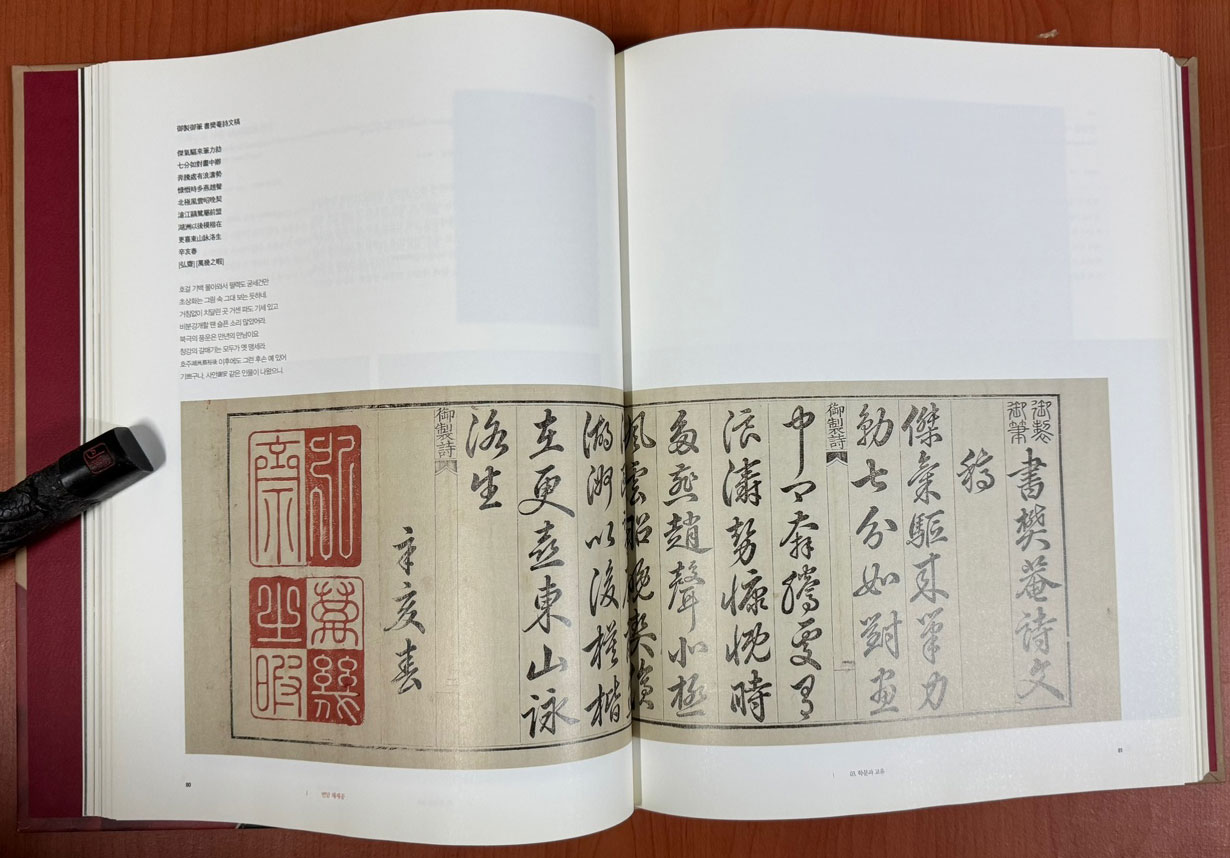 御製御筆 書樊菴詩文稿
傑氣驅來筆力勍
七分如對畫中卿
奔騰處有浪濤勢
慷慨時多燕趙聲
北極風雲昭晚契
滄江鷗鷺屬前盟
湖洲以後模楷在
更喜東山詠洛生
辛亥春
[弘齋] [萬幾之暇]
호걸 기백 몰아와서 필력도 굳세건만
초상화는 그림 속 그대 보는 듯하네
거침없이 치달린 곳 거센 파도 기세 있고
비분강개할 땐 슬픈 소리 많았어라
북극의 풍운은 만년의 만남이요
창강의 갈매기는 모두가 옛 맹세라
호주 이후에도 그런 후손 예 있어
기쁘구나, 사안 같은 인물이 나왔으니
御製
御筆
書樊菴詩文
稿
傑氣驅來筆力
勍七分如對畫
御製詩
中卿奔騰處有
浪濤勢慷慨時
多燕趙聲北極
風雲昭晚契滄
湖洲以後模楷
在更喜東山詠
洛生
御製詩
辛亥春
弘齋
萬幾之暇
80
번암 채제공
03. 학문과 교유
81